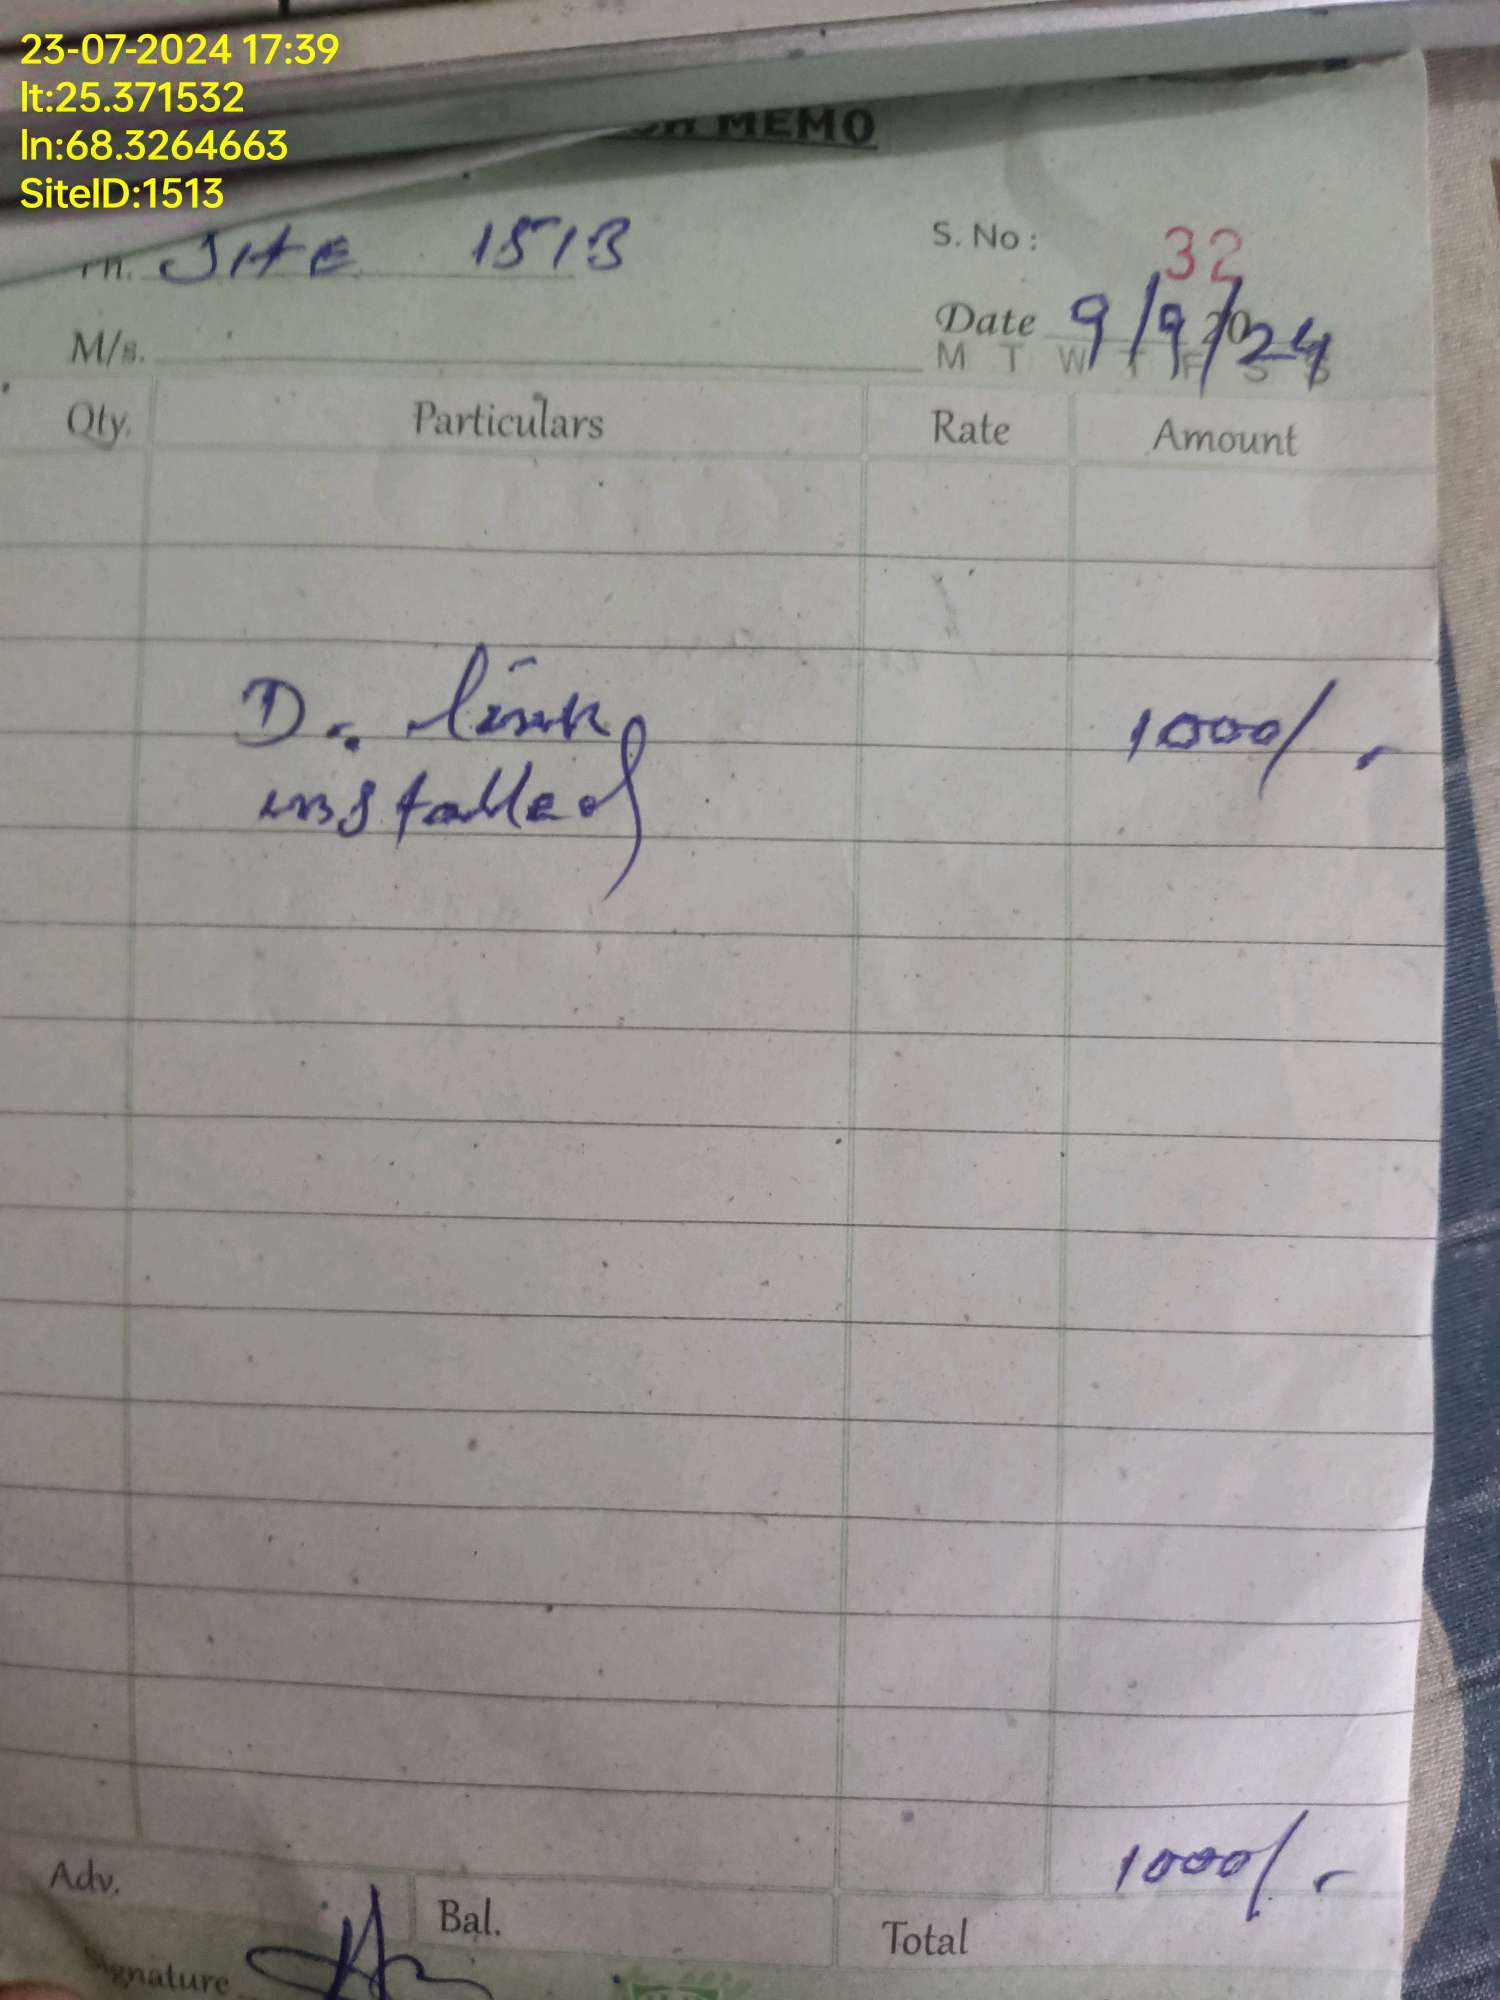 23-07-2024 17:39
lt:25.371532
ln:68.3264663
SiteID:1513
MEMO
Ph. SITE 1513
S. No: 32
M/s.
Date 9/9/2024
M T W T F S S
Qty. Particulars Rate Amount
D.. link 1000/-
installed
1000/-
Adv. Bal. Total
Signature